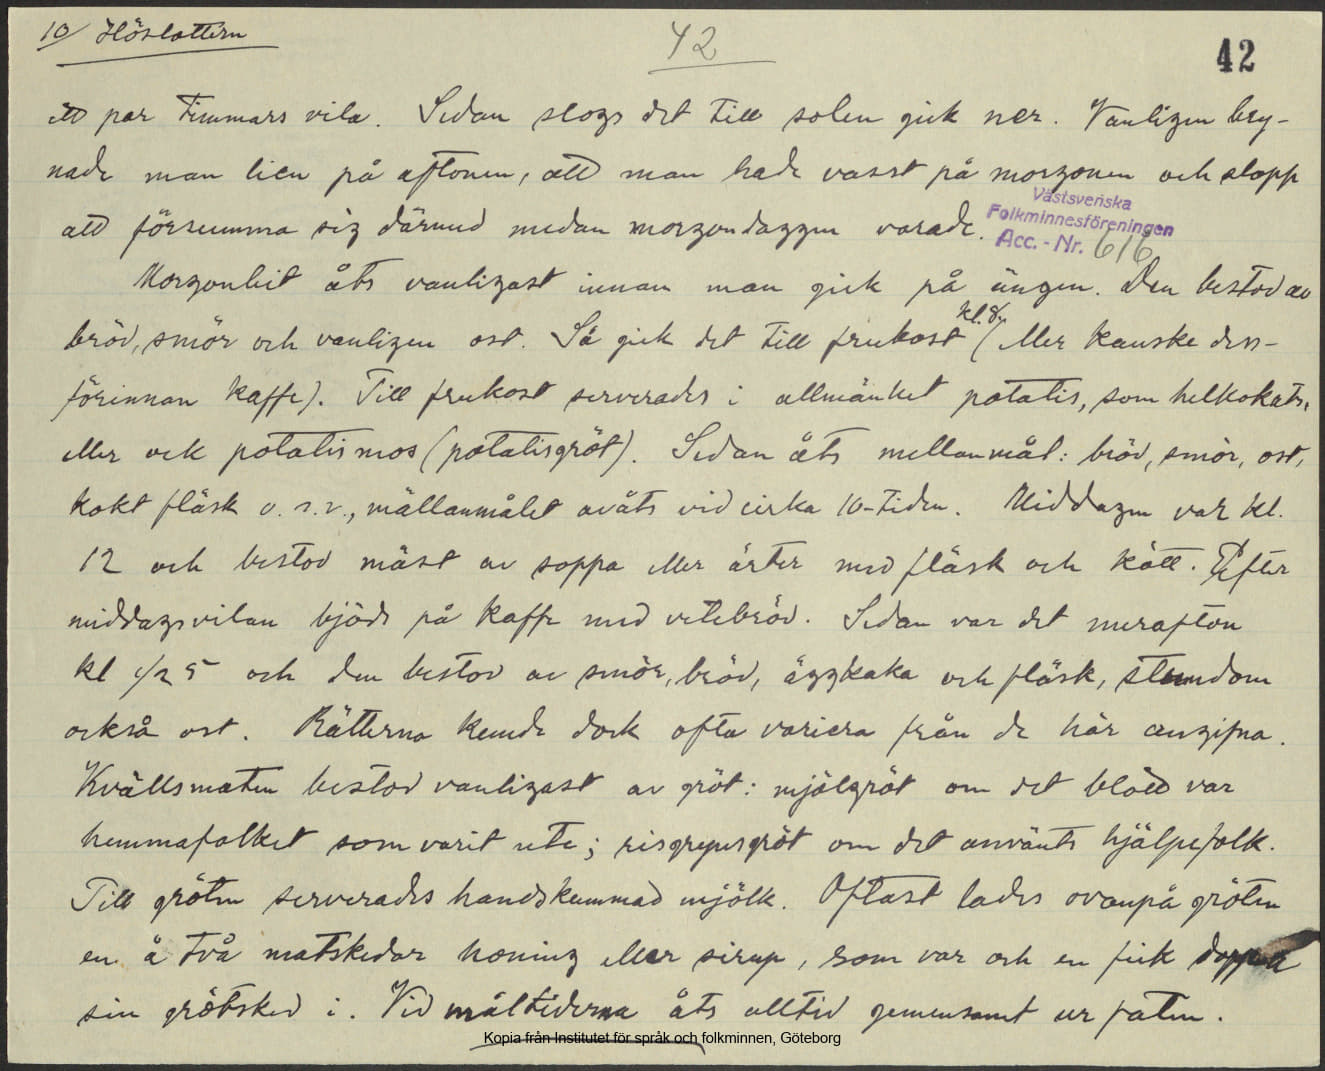 10/ Höslåttern
42
42
ett par timmars vila. Sedan slogs det till solen gick ner. Vanligen bry-
nade man lien på aftonen, att man hade vasst på morgonen och slapp
att försumma sig därmed medan morgondaggen varade.
Västsvenska
Folkminnesföreningen
Acc. - Nr. 616
Morgonbit åts vanligast innan man gick på ängen. Den bestod av
bröd, smör och vanligen ost. Så gick det till frukost kl. 8, (eller kanske dess-
förinnan kaffe). Till frukost serverades i allmänhet potatis, som helkokats,
eller ock potatismos (potatisgröt). Sedan åts mellanmål: bröd, smör, ost,
kokt fläsk o. s. v., mällanmålet avåts vid cirka 10-tiden. Middagen var kl.
12 och bestod mäst av soppa eller ärter med fläsk och kött. Efter
middagsvilan bjöds på kaffe med vetebröd. Sedan var det merafton
kl 1/2 5 och den bestod av smör, bröd, äggkaka och fläsk, stundom
också ost. Rätterna kunde dock ofta variera från de här angifna.
Kvällsmaten bestod vanligast av gröt: mjölgröt om det blott var
hemmafolket som varit ute; risgrynsgröt om det använts hjälpefolk.
Till gröten serverades handskummad mjölk. Oftast lades ovanpå gröten
en å två matskedar honing eller sirup, som var och en fick doppa
sin grötsked i. Vid måltiderna åts alltid gemensamt ur faten.
Kopia från Institutet för språk och folkminnen, Göteborg